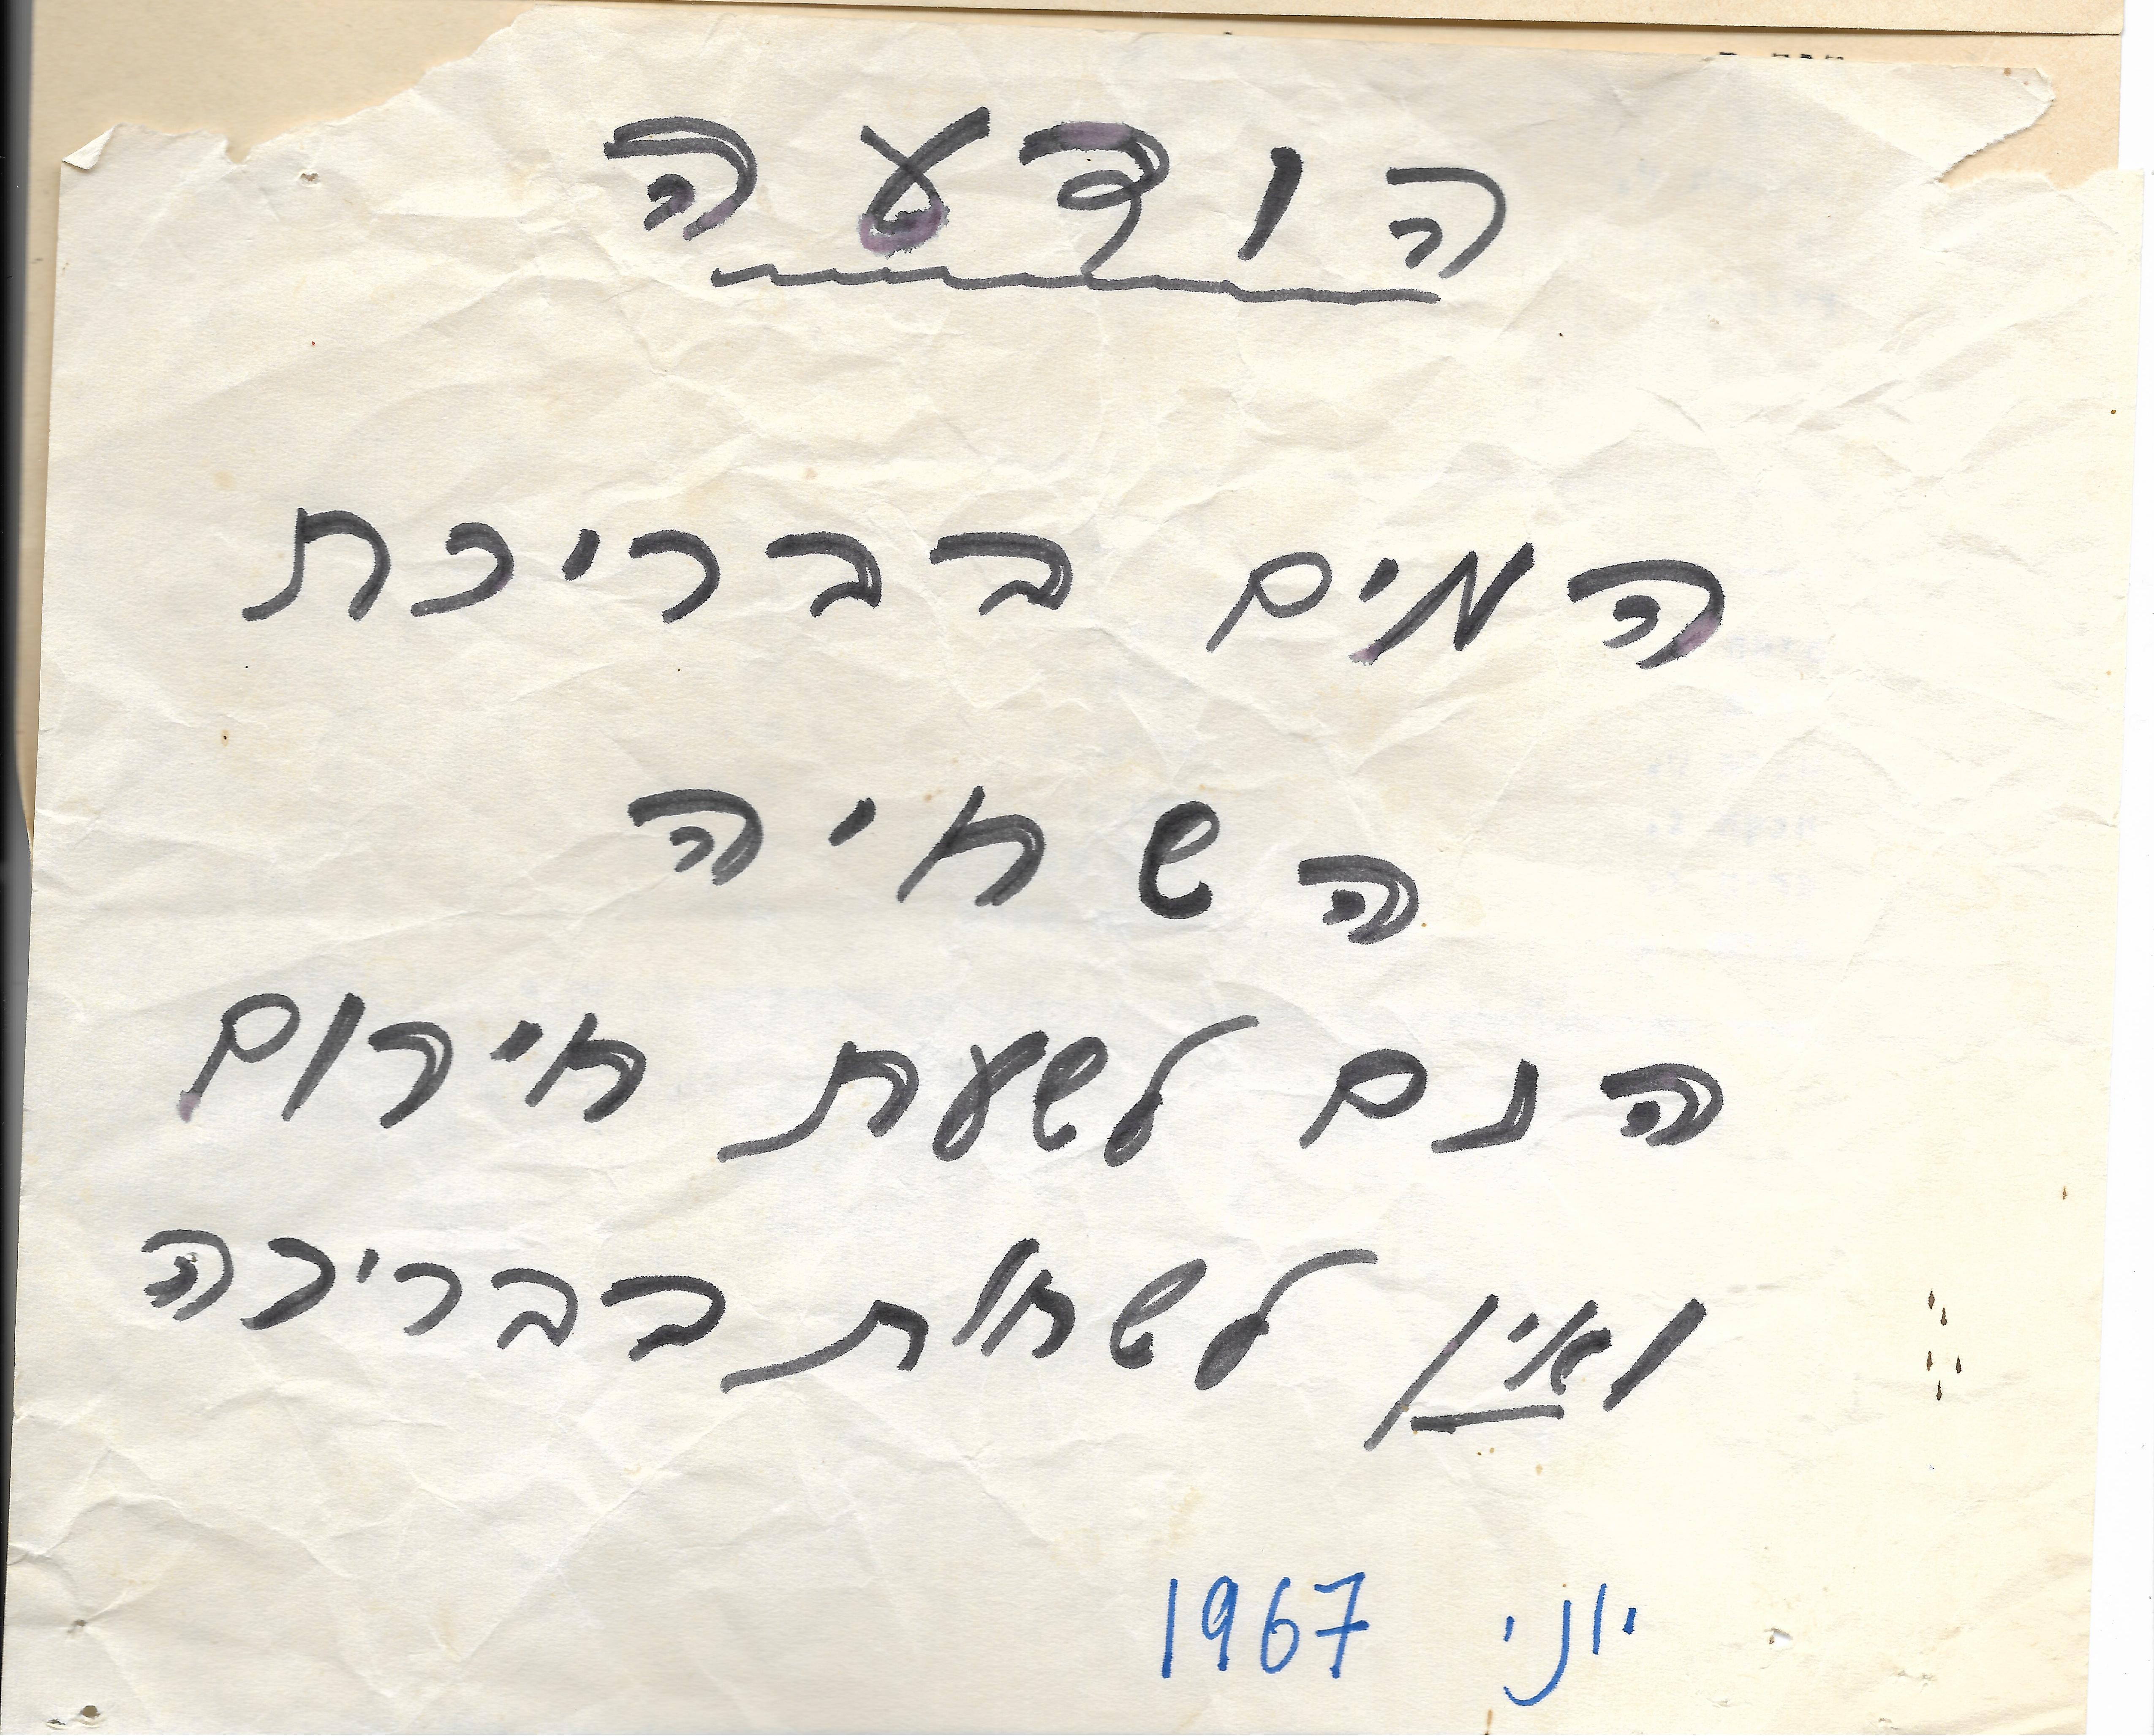 הודעה
המים בבריכת
השחיה
הנם לשעת חירום
ואין לשחות בבריכה
יוני 1967